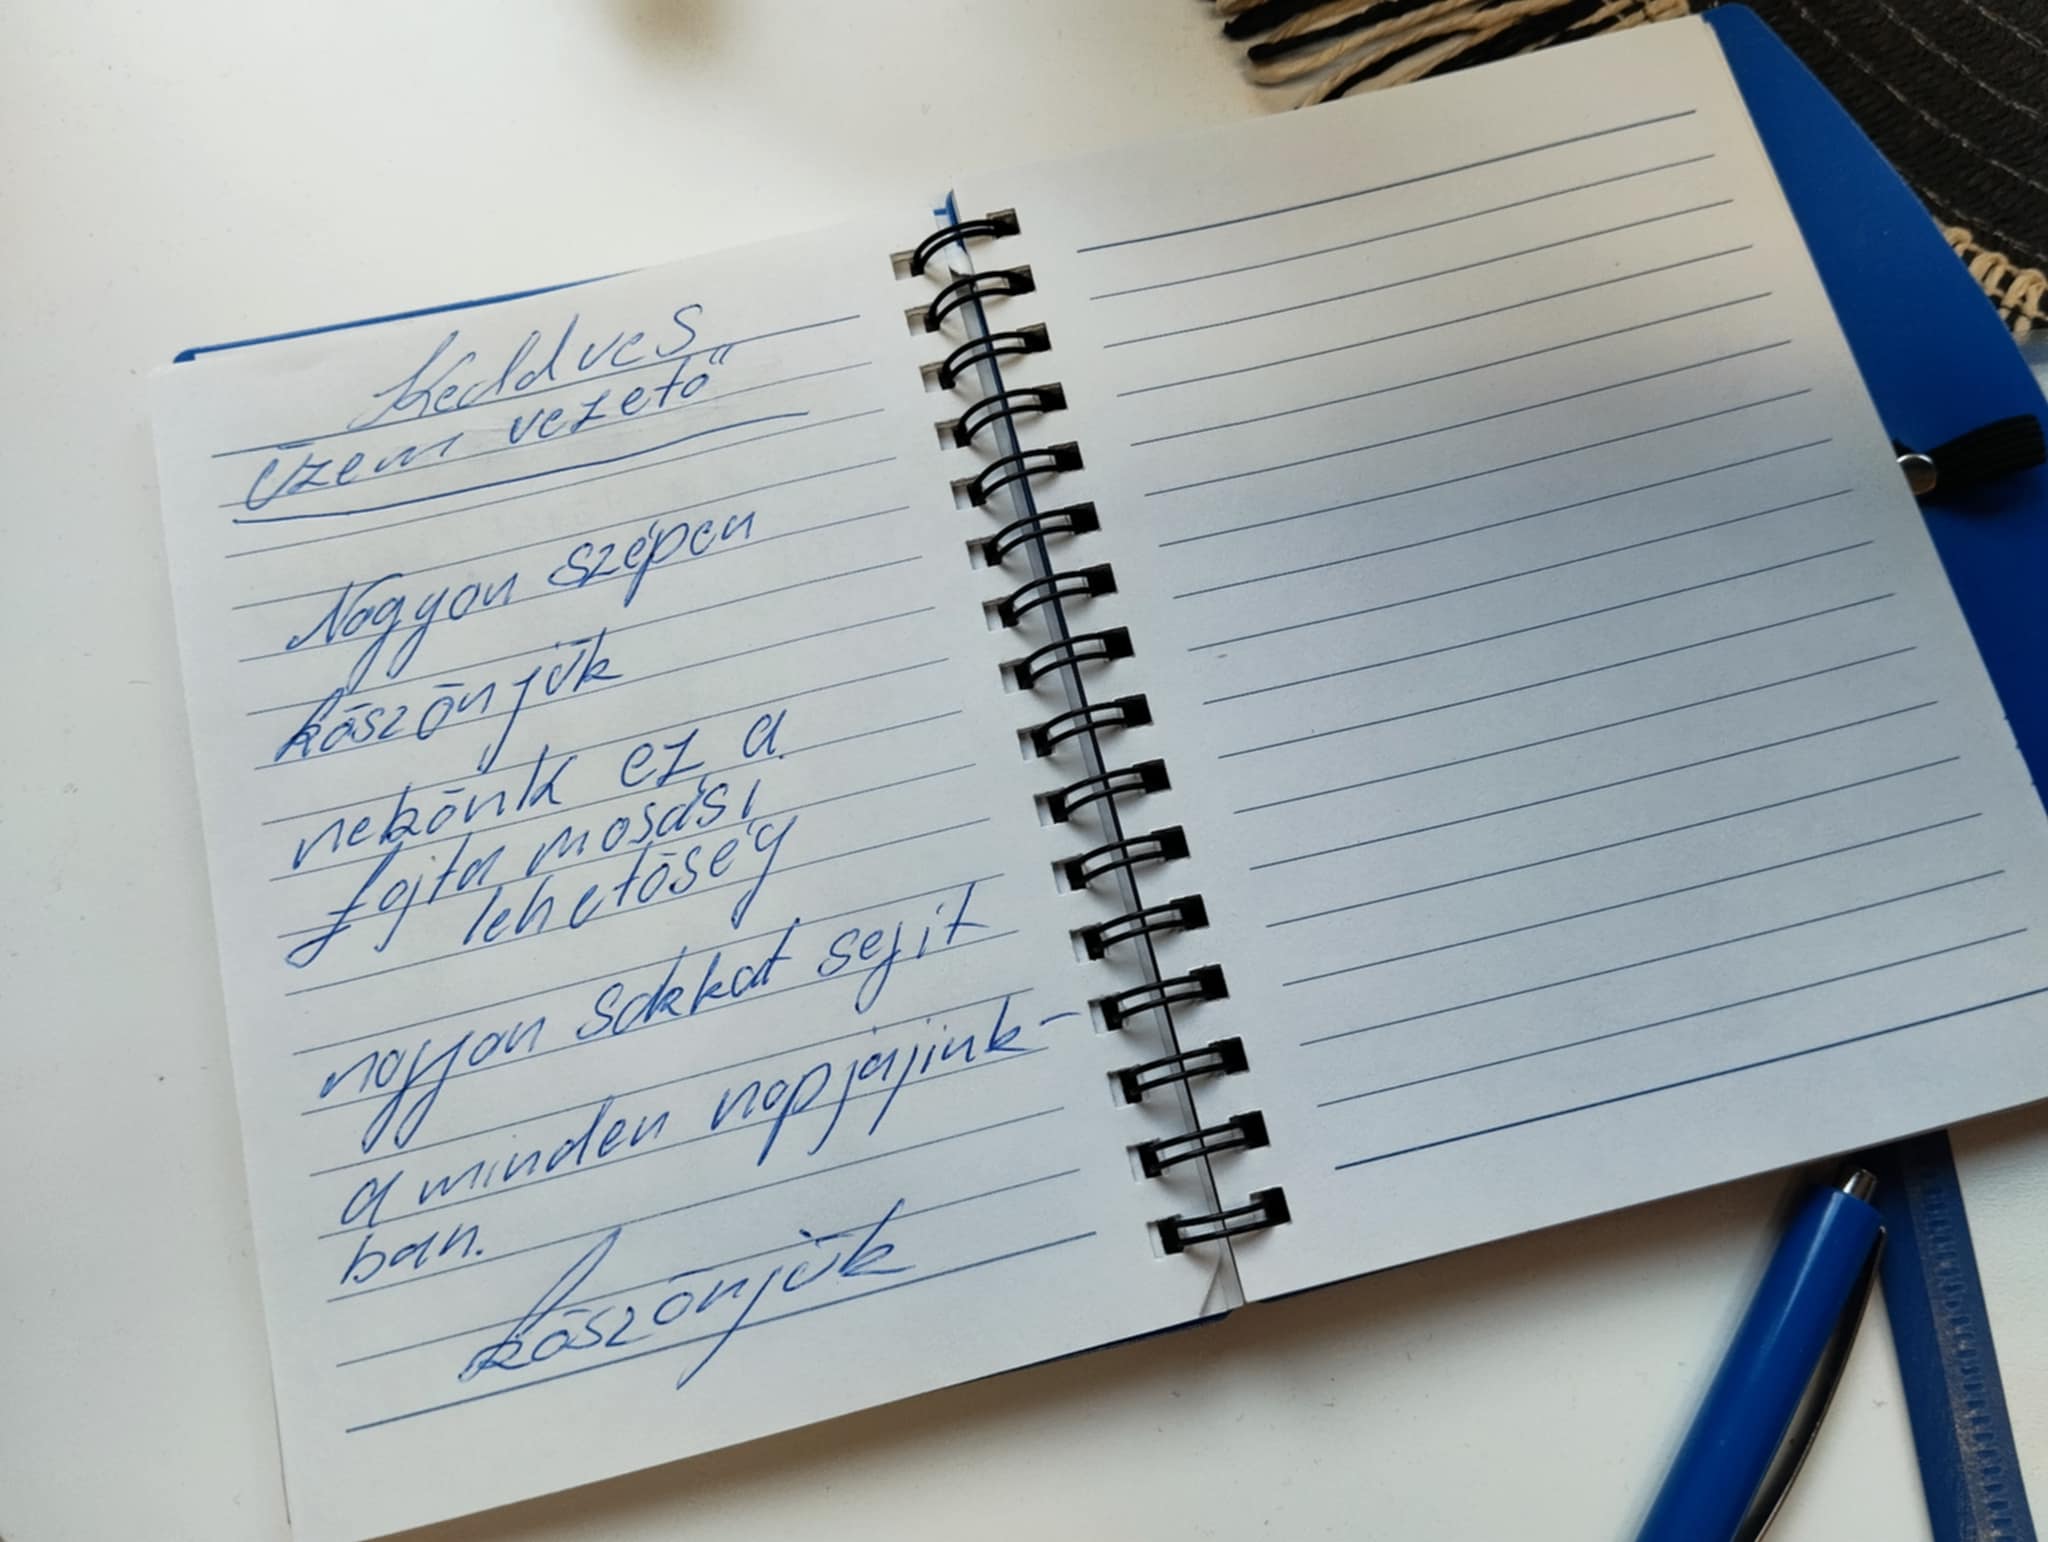 Keddves
Üzem vezető"
Nagyon szépen
köszönjük
nekönk ez a
fajta mosási
lehetőség
nagyon sokkat sejit
a minden napjajink-
ban.
köszönjük